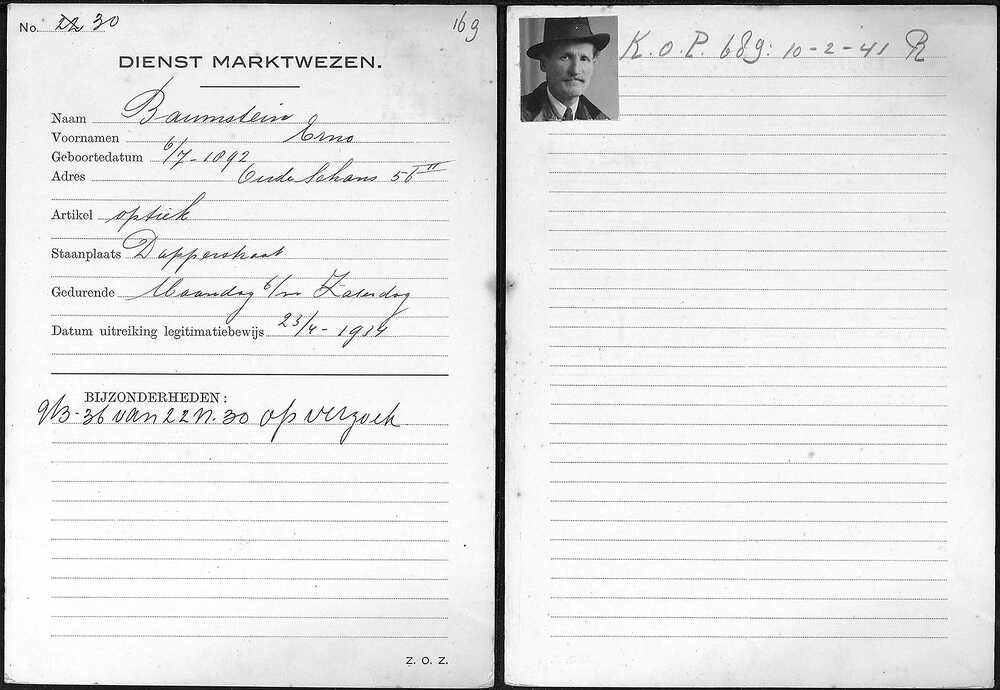 No. 22 30
169
DIENST MARKTWEZEN.
Naam Baumstein
Voornamen Erno
Geboortedatum 6/7-1892
Adres Oude Schans 56 II
Artikel optiek
Staanplaats Dapperstraat
Gedurende Maandag t/m Zaterdag
Datum uitreiking legitimatiebewijs 23/4-1934
BIJZONDERHEDEN:
9/3-36 van 22 n. 30 op verzoek
Z. O. Z.
K.O.P. 689: 10-2-41 R